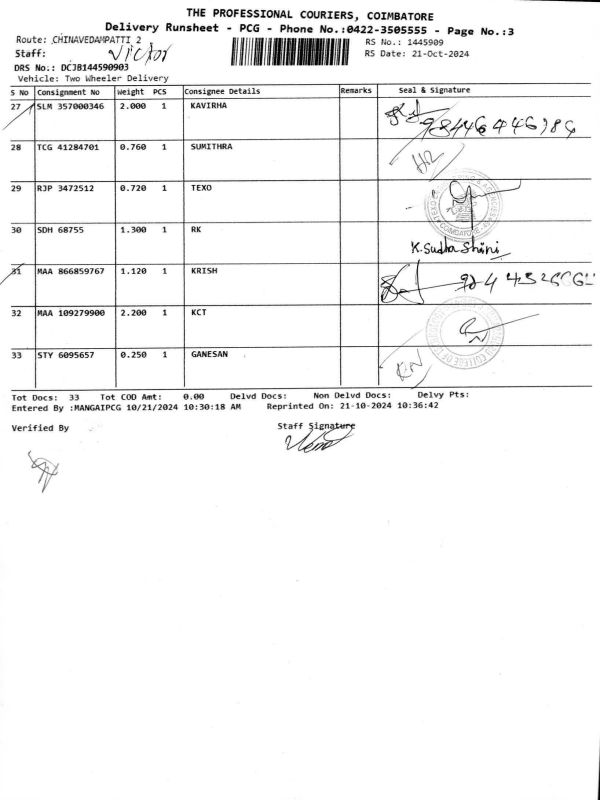 THE PROFESSIONAL COURIERS, COIMBATORE
Delivery Runsheet - PCG - Phone No.:0422-3505555 - Page No.:3
Route: CHINAVEDAMPATTI 2
RS No.: 1445909
Staff: Victor
RS Date: 21-Oct-2024
DRS No.: DCJB144590903
Vehicle: Two Wheeler Delivery
S No Consignment No Weight PCS Consignee Details Remarks Seal & Signature
27 SLM 357000346 2.000 1 KAVIRHA
28 TCG 41284701 0.760 1 SUMITHRA
29 RJP 3472512 0.720 1 TEXO
30 SDH 68755 1.300 1 RK K. Sudha Shini
31 MAA 866859767 1.120 1 KRISH
32 MAA 109279900 2.200 1 KCT
33 STY 6095657 0.250 1 GANESAN
Tot Docs: 33 Tot COD Amt: 0.00 Delvd Docs: Non Delvd Docs: Delvy Pts:
Entered By :MANGAIPCG 10/21/2024 10:30:18 AM Reprinted On: 21-10-2024 10:36:42
Verified By Staff Signature